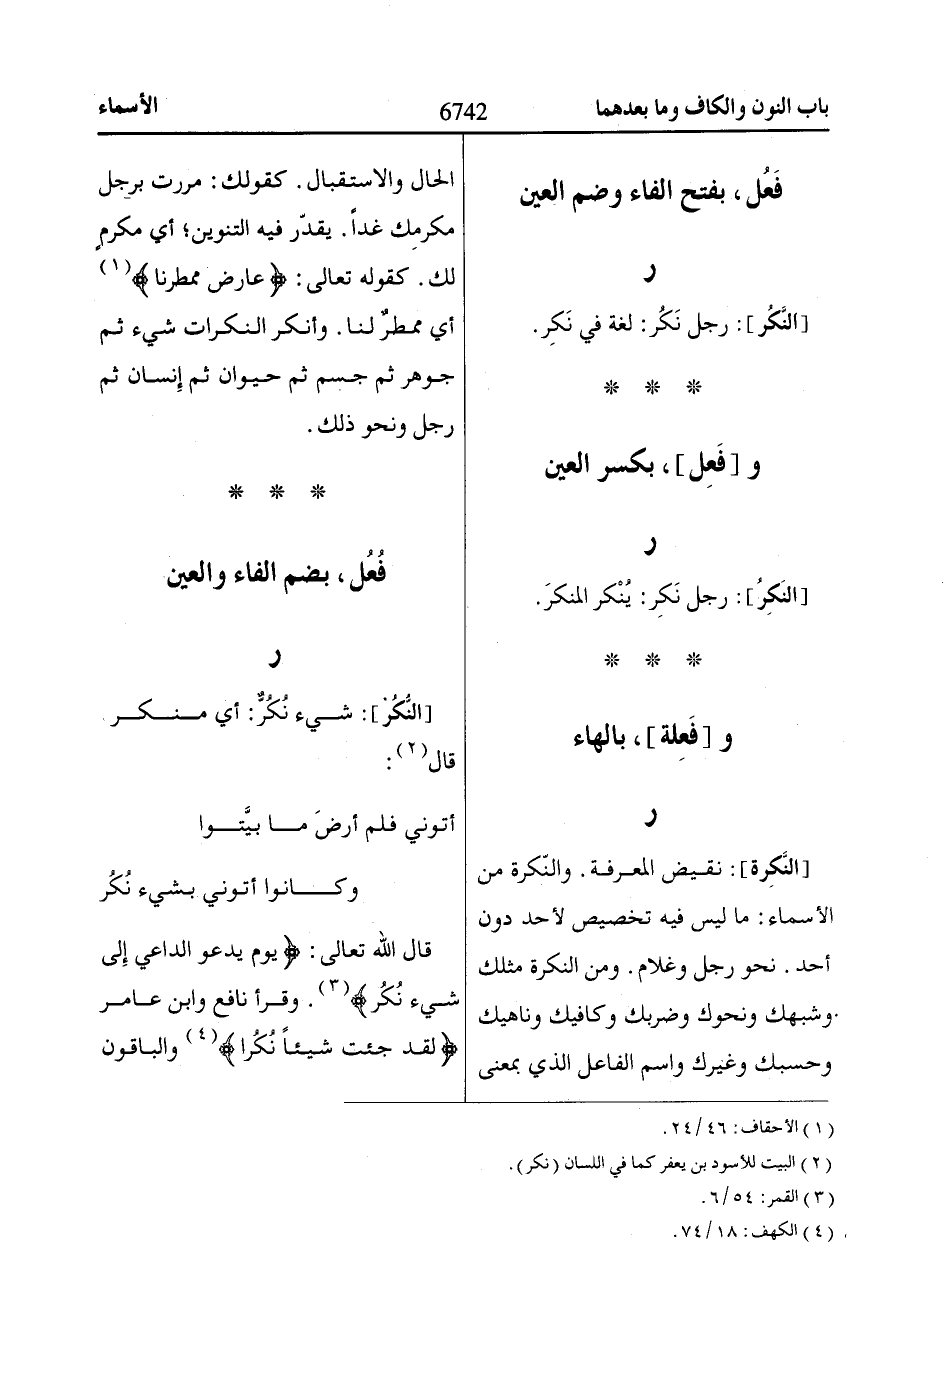 باب النون والكاف وما بعدهما 6742 الأسماء
فَعُل، بفتح الفاء وضم العين
ر
[النَّكُر]: رجل نَكُر: لغة في نَكِر.
* * *
و [فَعِل]، بكسر العين
ر
[النَكِرُ]: رجل نَكِر: يُنْكر المنكرَ.
* * *
و [فَعِلة]، بالهاء
ر
[النَّكِرة]: نقيض المعرفة. والنّكرة من
الأسماء: ما ليس فيه تخصيص لأحد دون
أحد. نحو رجل وغلام. ومن النكرة مثلك
وشبهك ونحوك وضربك وكافيك وناهيك
وحسبك وغيرك واسم الفاعل الذي بمعنى
الحال والاستقبال. كقولك: مررت برجلٍ
مكرمِك غداً. يقدّر فيه التنوين؛ أي مكرمٍ
لك. كقوله تعالى: ﴿عارض ممطرنا﴾(١)
أي ممطرٌ لنا. وأنكر النكرات شيء ثم
جوهر ثم جسم ثم حيوان ثم إنسان ثم
رجل ونحو ذلك.
* * *
فُعُل، بضم الفاء والعين
ر
[النُّكُرْ]: شيء نُكُرٌّ: أي منكر.
قال(٢):
أتوني فلم أرضَ ما بيَّتوا
وكانوا أتوني بشيء نُكُر
قال الله تعالى: ﴿يوم يدعو الداعي إلى
شيء نُكُر﴾(٣). وقرأ نافع وابن عامر
﴿لقد جئت شيئاً نُكُرا﴾(٤) والباقون
(١) الأحقاف: ٢٤/٤٦.
(٢) البيت للأسود بن يعفر كما في اللسان (نكر).
(٣) القمر: ٦/٥٤.
(٤) الكهف: ٧٤/١٨.